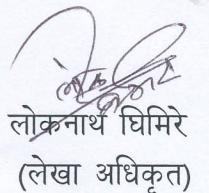 लोकनाथ घिमिरे
(लेखा अधिकृत)